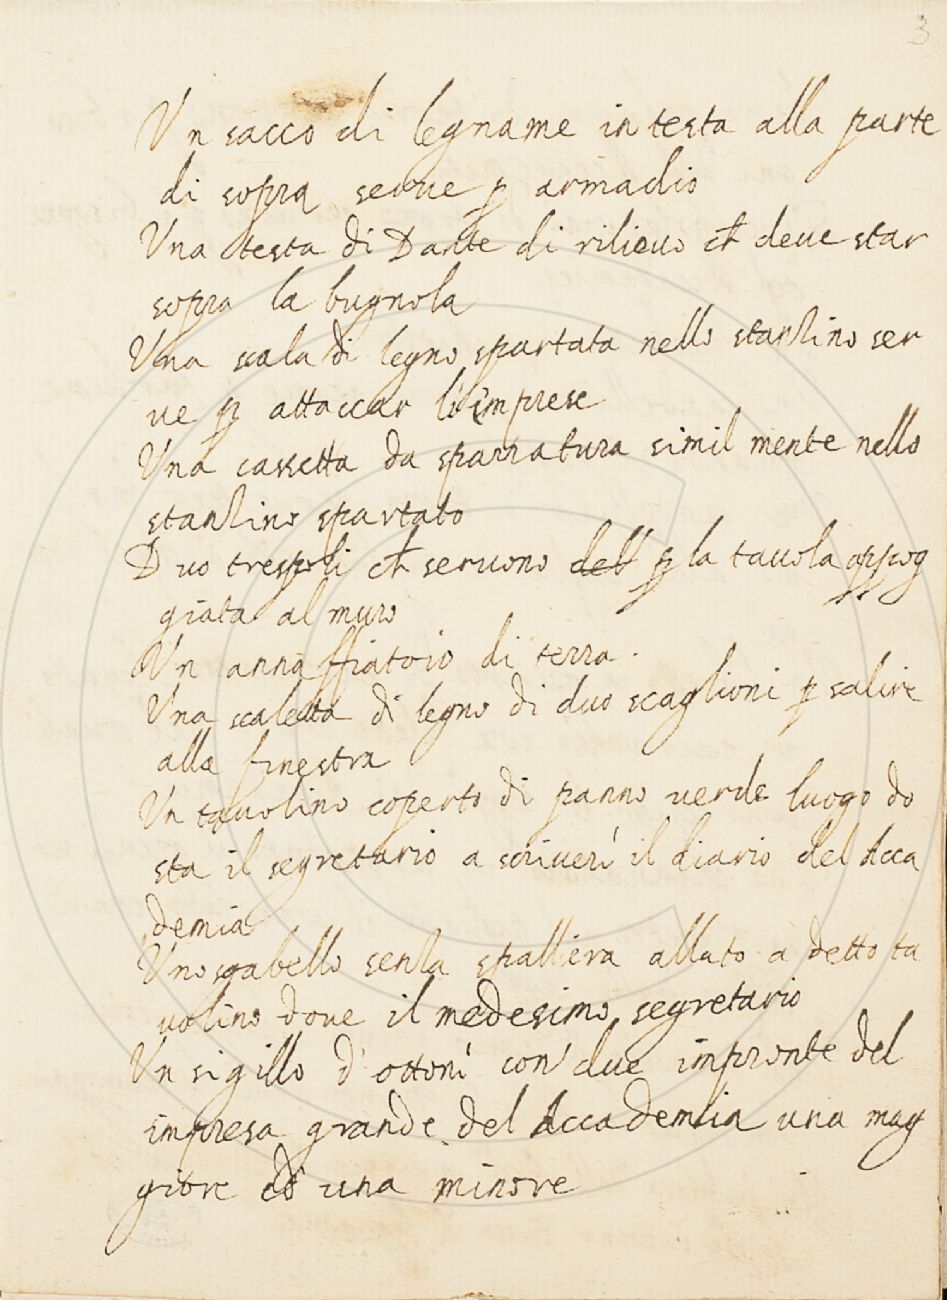 3
Un sacco di legname in testa alla parte
di sopra serue p armadio
Una testa di Dante di rilieuo ch deue star
sopra la bugnola
Una scala di legno spartata nello stanzino ser
ue p attaccar li imprese
Una cassetta da spazzatura simil mente nello
stanzino spartato
Duo trespoli ch seruono dell p la tauola appog
giata al muro
Un annaffiatoio di terra.
Una scaletta di legno di duo scaglioni p salire
alla finestra
Un tauolino coperto di panno uerde luogo do
sta il segretario a scriueri il diario del Acca
demia
Uno sgabello senza spalliera allato a detto ta
uolino doue il medesimo segretario
Un sigillo d'ottoni con due impronte del
impresa grande del Accademia una mag
giore ed una minore